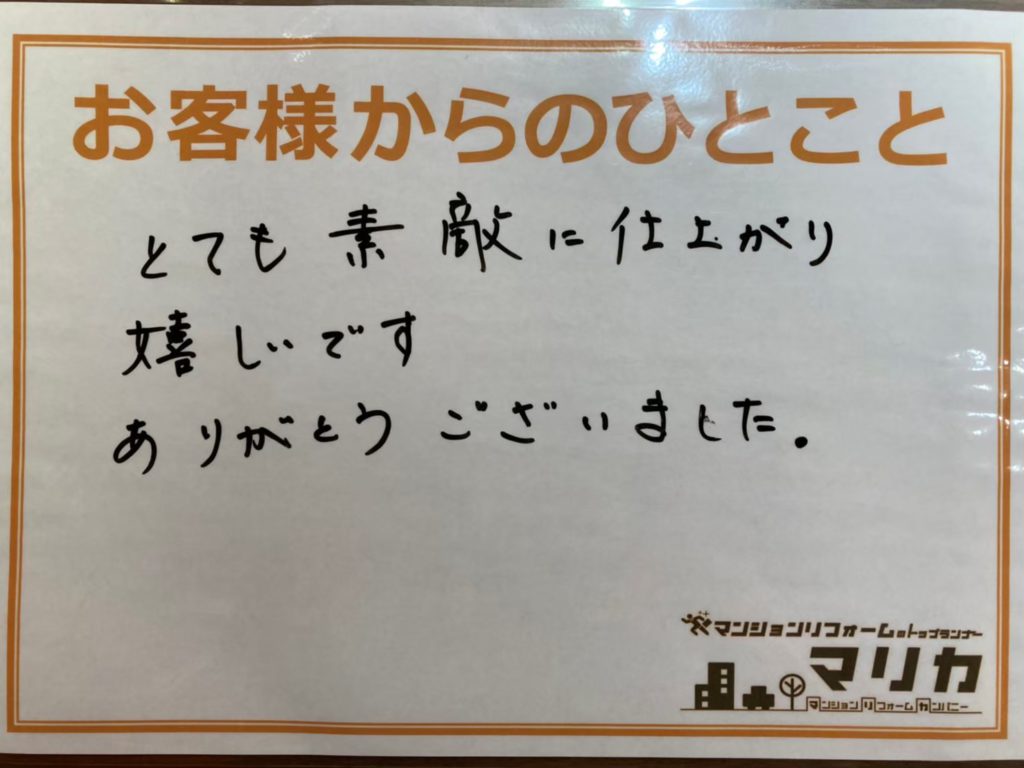 お客様からのひとこと
とても素敵に仕上がり
嬉しいです
ありがとうございました。
マンションリフォームのトップランナー
マリカ
マンションリフォームカンパニー